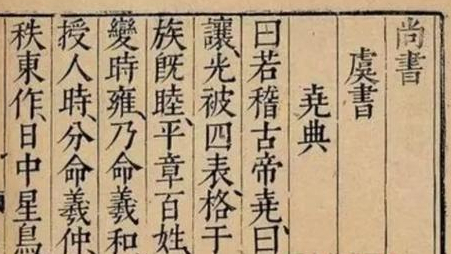 尚書
虞書
堯典
曰若稽古帝堯曰
讓光被四表格于
族既睦平章百姓
變時雍乃命羲和
授人時分命羲仲
秩東作日中星鳥